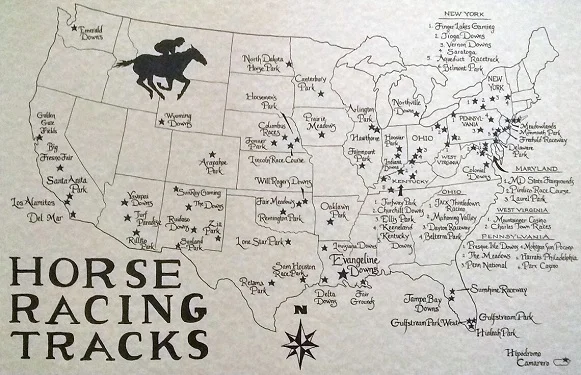 NEW YORK
1. Finger Lakes Gaming
2. Tioga Downs
3. Vernon Downs
4. Saratoga
5. Aqueduct Racetrack
Belmont Park
Emerald
Downs
North Dakota
Horse Park
Canterbury
Park
Horsemen's
Park
Arlington
Park
Northville
Downs
NEW
YORK
Golden
Gate
Fields
Wyoming
Downs
Columbus
Races
Prairie
Meadows
Hawthorne
Hoosier
Park
OHIO
PENNSYL-
VANIA
Meadowlands
Monmouth Park
Freehold Raceway
Big
Fresno Fair
Fonner
Park
Lincoln Race Course
Fairmount
Park
Indiana
Downs
WEST
VIRGINIA
Delaware
Park
Arapahoe
Park
Colonial
Downs
Santa Anita
Park
Will Rogers Downs
KENTUCKY
MARYLAND
1. MD State Fairgrounds
2. Pimlico Race Course
3. Laurel Park
Los Alamitos
Yavapai
Downs
SunRay Gaming
The Downs
Fair Meadows
Oaklawn
Park
1. Turfway Park
2. Churchill Downs
3. Ellis Park
4. Keeneland
5. Kentucky
Downs
OHIO
1. Jack Thistledown
Racino
2. Mahoning Valley
3. Dayton Raceway
4. Belterra Park
Del Mar
Turf
Paradise
Ruidoso
Downs
Zia
Park
Remington
Park
WEST VIRGINIA
1. Mountaineer Casino
2. Charles Town Races
Rillito
Park
Sunland
Park
Lone Star Park
Louisiana Downs
PENNSYLVANIA
1. Presque Isle Downs
2. The Meadows
3. Penn National
4. Mohegan Sun Pocono
5. Harrah's Philadelphia
6. Parx Casino
HORSE
RACING
TRACKS
Evangeline
Downs
Sam Houston
Race Park
Retama
Park
Delta
Downs
Fair
Grounds
Tampa Bay
Downs
Sunshine Raceway
N
Gulfstream Park West
Gulfstream Park
Hialeah Park
Hipodromo
Camarero